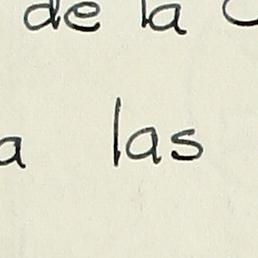 de la
a las